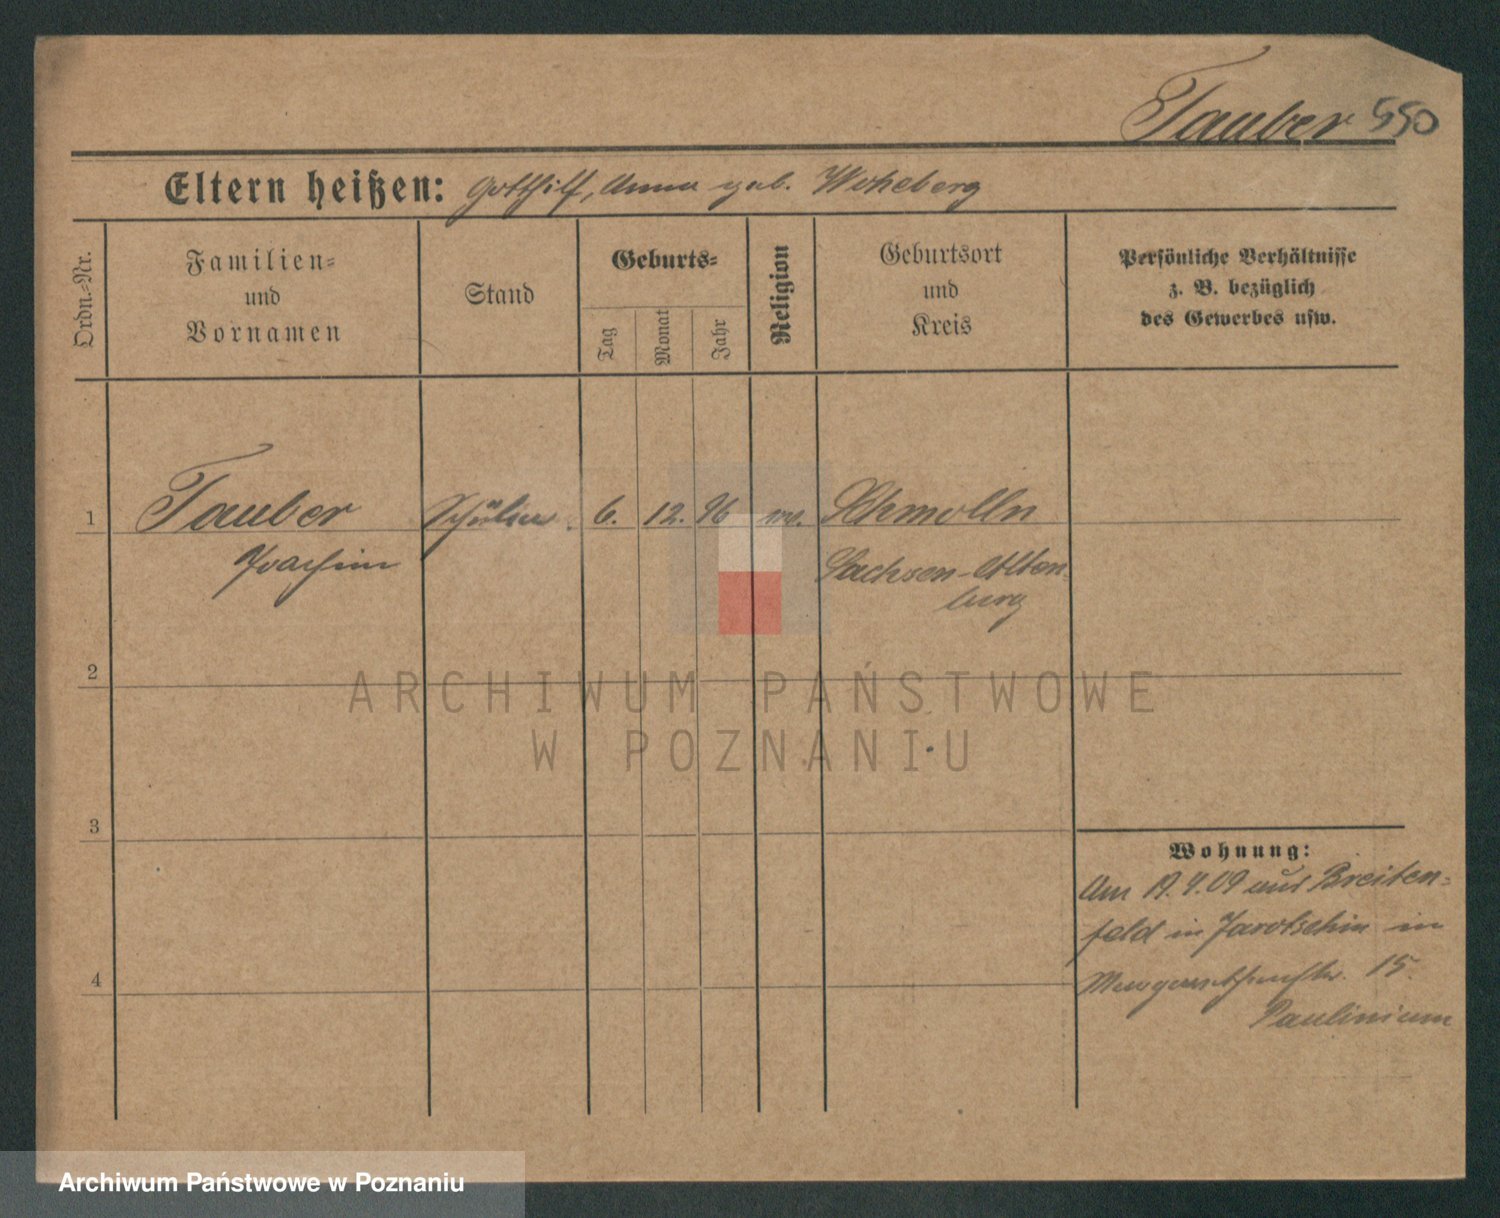 Tauber 550
Eltern heißen: Gotthilf, Anna geb. Woheberg
Ordn.-Nr.
Familien-
und
Vornamen
Stand
Geburts-
Tag
Monat
Jahr
Religion
Geburtsort
und
Kreis
Persönliche Verhältnisse
z. B. bezüglich
des Gewerbes usw.
1 Tauber Schüler. 6. 12. 96 Schmolln
Joachim Sachsen-Alten
burg
2
ARCHIWUM PAŃSTWOWE
W POZNANIU
3
Wohnung:
Am 19.4.09 aus Breiten-
feld in Jarotschin in
4
15.
Paulinium
Archiwum Państwowe w Poznaniu